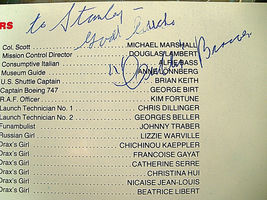 to Stanley -
Good luck
RS
Col. Scott MICHAEL MARSHALL
Mission Control Director DOUGLAS LAMBERT
Consumptive Italian ALFIE BASS
Museum Guide ANNE LONNBERG
U.S. Shuttle Captain BRIAN KEITH
Captain Boeing 747 GEORGE BIRT
R.A.F. Officer KIM FORTUNE
Launch Technician No. 1 CHRIS DILLINGER
Launch Technician No. 2 GEORGES BELLER
Funambulist JOHNNY TRABER
Russian Girl LIZZIE WARVILLE
Drax's Girl CHICHINOU KAEPPLER
Drax's Girl FRANCOISE GAYAT
Drax's Girl CATHERINE SERRE
Drax's Girl CHRISTINA HUI
Drax's Girl NICAISE JEAN-LOUIS
Drax's Girl BEATRICE LIBERT